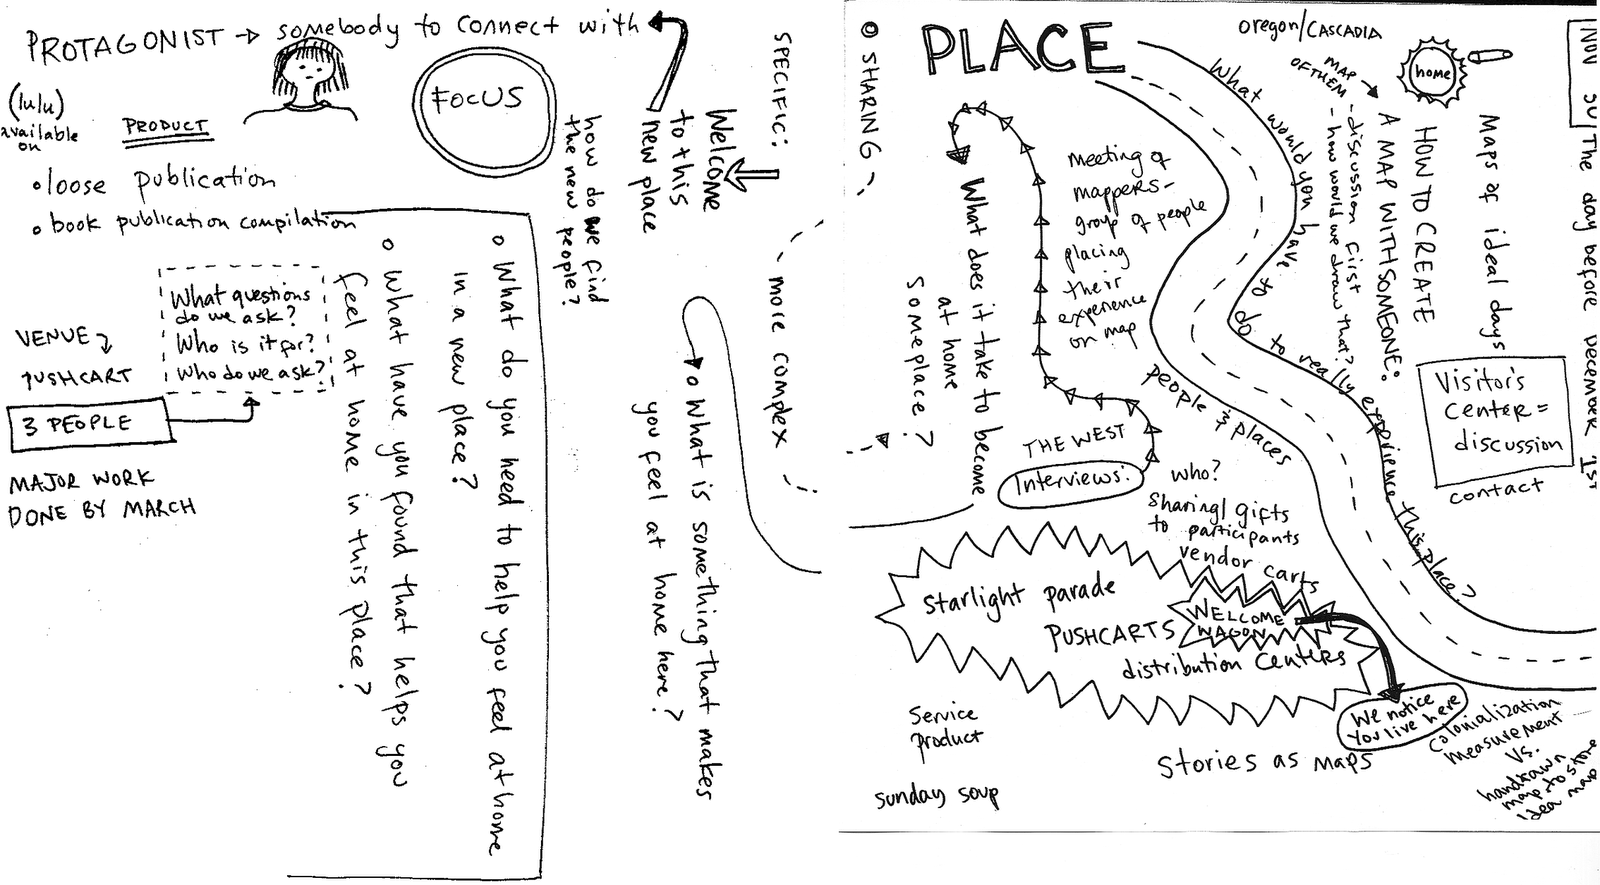 PROTAGONIST → somebody to connect with
(lulu)
available
on
PRODUCT
FOCUS
• loose publication
• book publication compilation
What questions
do we ask?
Who is it for?
Who do we ask?
VENUE
PUSHCART
3 PEOPLE
MAJOR WORK
DONE BY MARCH
SPECIFIC:
Welcome
to this
new place
how do we find
the new people?
more complex
• What is something that makes
you feel at home here?
• What do you need to help you feel at home
in a new place?
• What have you found that helps you
feel at home in this place?
• SHARING
PLACE
Oregon/CASCADIA
home
MAP
OF THEM
What would you have to do to really experience this place?
The day before DECEMBER 1ST
Maps of ideal days
HOW TO CREATE
A MAP WITH SOMEONE:
- discussion first
- how would we draw that?
Meeting of
mappers-
group of people
placing
their
experience
on map
What does it take to become
at home
someplace?
people & places
Visitor's
Center =
discussion
contact
THE WEST
Interviews:
who?
Sharing/gifts
to participants
vendor carts
Starlight parade
PUSHCARTS
WELCOME
WAGON
distribution centers
We notice
You live here
Service
product
Stories as maps
sunday soup
Colonialization
measurement
vs.
handdrawn
map to store
idea map